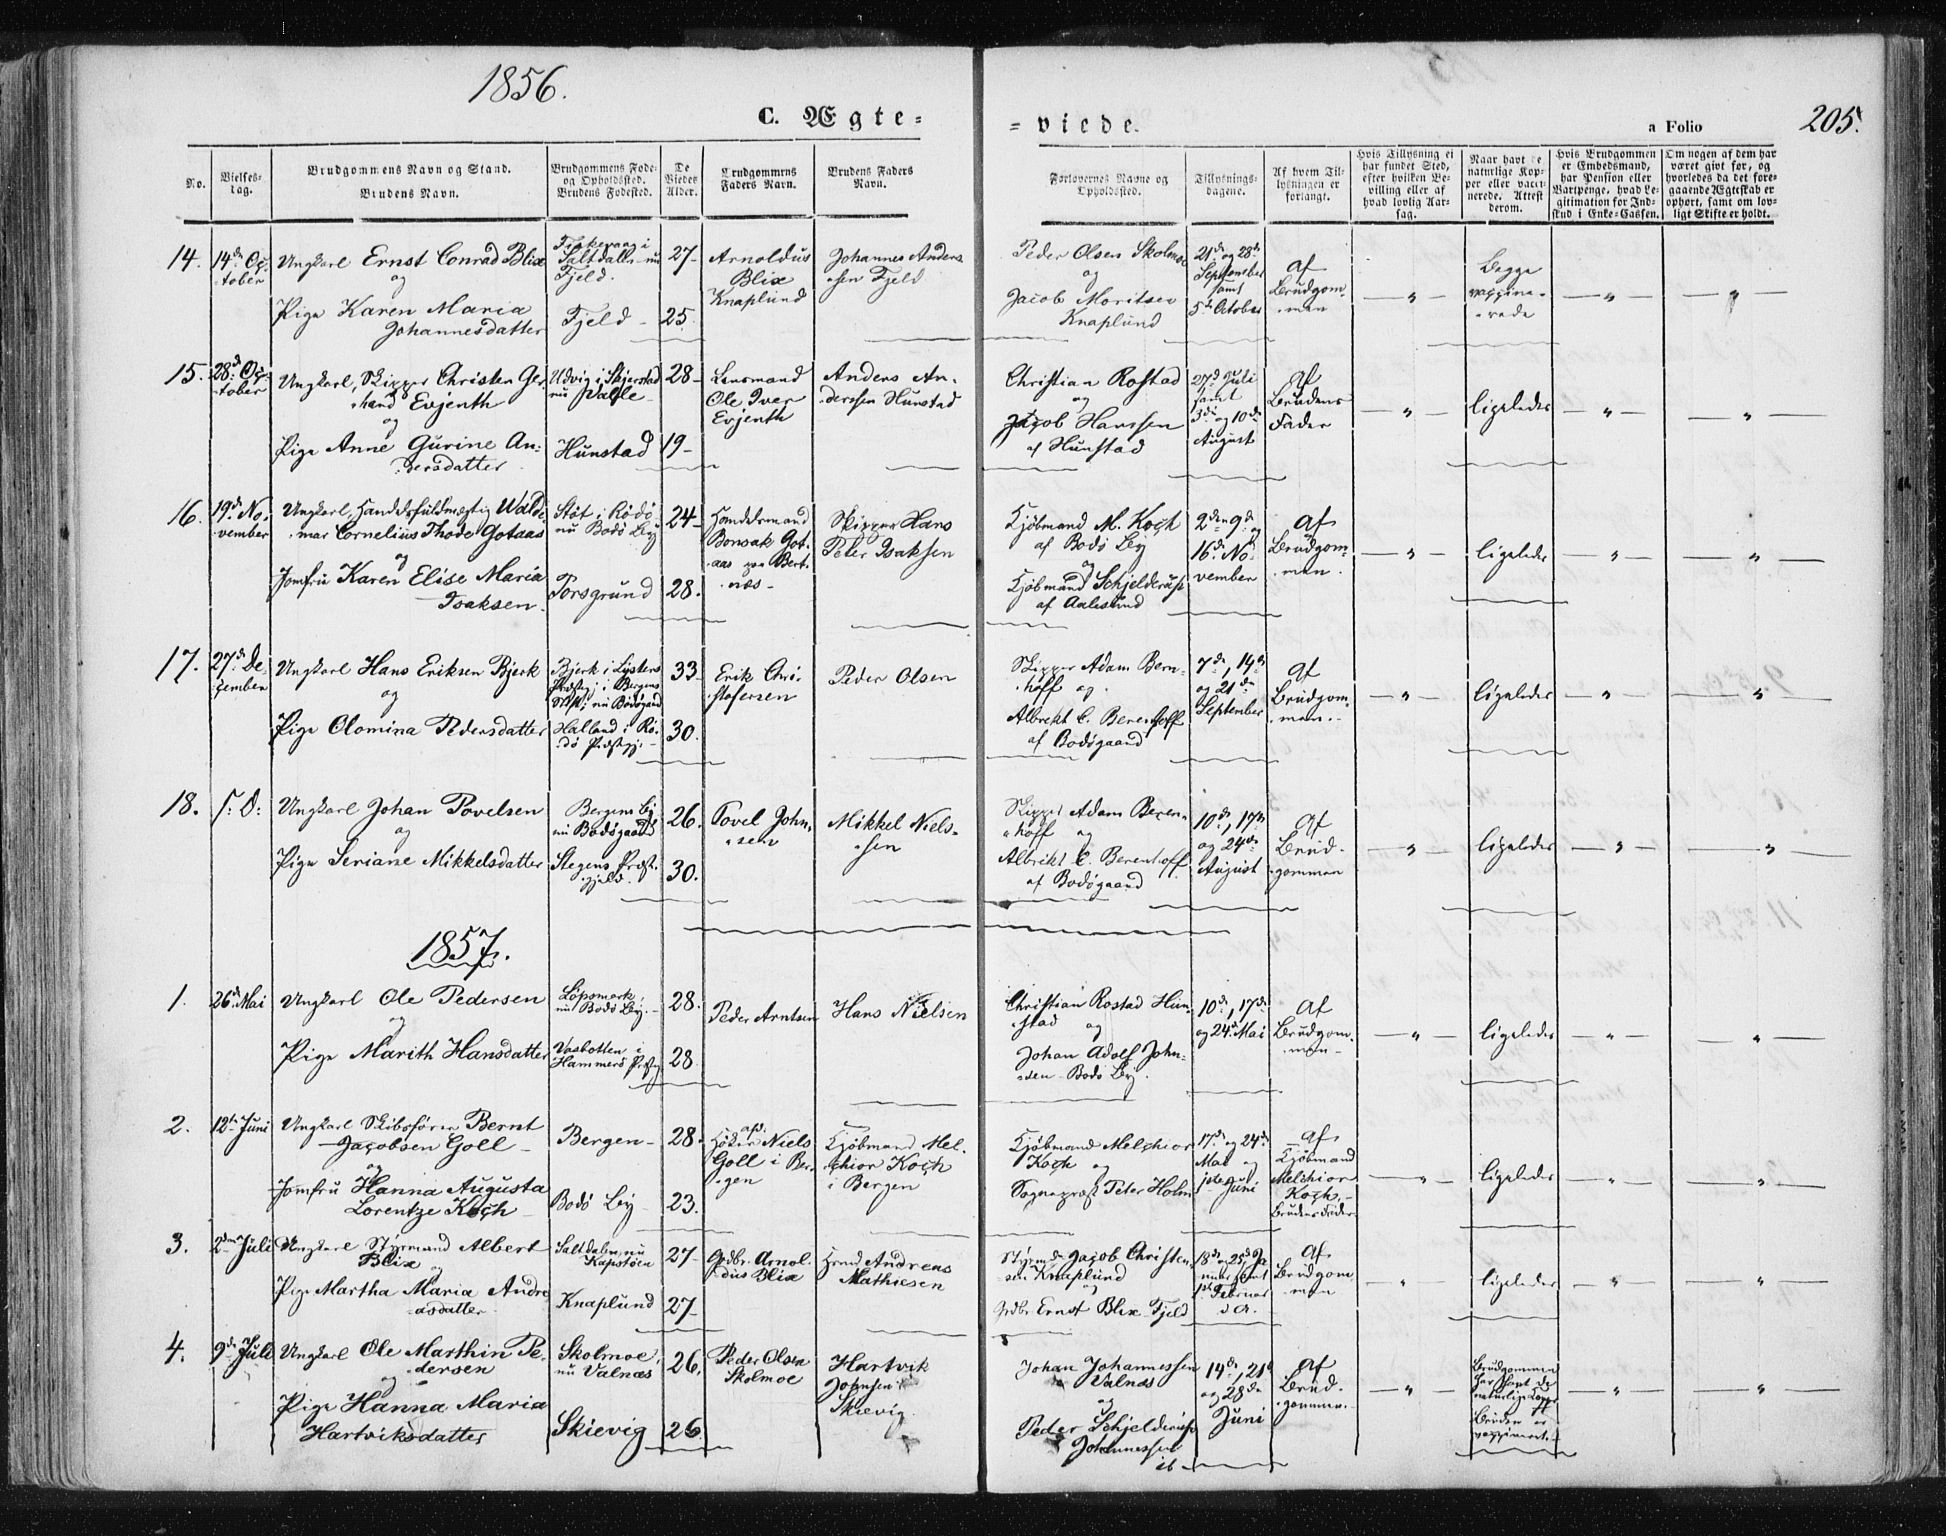 1856.
C. Ægte-
-viede.
a Folio
205.
No.
Vielses-
dag.
Brudgommens Navn og Stand.
Brudens Navn.
Brudgommens Føde-
og Opholdssted.
Brudens Fødested.
De
Viedes
Alder.
Brudgommens
Faders Navn.
Brudens Faders
Navn.
Forlovernes Navne og
Opholdssted.
Tillysnings-
dagene.
Af hvem Til-
lysningen er
forlangt.
Hvis Tillysning ei
har fundet Sted,
efter hvilken Be-
villing eller af
hvad lovlig Aar-
sag.
Naar havt de
naturlige Kop-
per eller vacci-
nerede. Attest
derom.
Hvis Brudgommen
er Embedsmand,
har Pension eller
Vartpenge, hvad Le-
gitimation for Ind-
skud i Enke-Cassen.
Om nogen af dem har
været givt før, og
hvorledes da det fore-
gaaende Ægteskab er
ophørt, samt om lov-
ligt Skifte er holdt.
14.
14de Oc-
tober
Ungkarl Ernst Conrad Blix
og
Pige Karen Maria
Johannesdatter
Fiskevaag i
Saltdalen nu
Fjeld.
Fjeld -
27-
25.
Arnoldus
Blix
Knaplund
Johannes Anders
-sen Fjeld
Peder Olsen Skolmoe
og
Jacob Moritsen
Knaplund
21de og 28de
September
samt
5te October
Af
Brudgom-
men
— " —
Begge
vaccine-
-rede
— " —
— " —
15.
28de Oc-
tober
Ungkarl, Skipper Christen Ger-
hard Evjenth
og
Pige Anne Gurine An-
dersdatter
Udvig i Skjerstad
nu Valle -
Hunstad
28-
19-
Lensmand
Ole Iver
Evjenth
Anders An-
derssen Hunstad
Christian Rostad
og
Jacob Hanssen
af Hunstad
27de Juli
samt
3die og 10de
August
Af
Brudens
Fader
— " —
ligeledes
— " —
— " —
16.
19de No-
vember
Ungkarl, Handelsfuldmægtig Walde-
mar Cornelius Thode Gotaas
og
Jomfru Karen Elise Maria
Isaksen.
Støt i Rødø
nu Bodø By
Porsgrund
24-
28.
Handelsmand
Bonsak Got-
aas paa Bert-
næs -
Skipper Hans
Peter Isaksen
Kjøbmand M. Koch
af Bodø By
og
Kjøbmand Schjelderup
af Aalesund
2den 9de og
16de No-
vember
Af
Brudgom-
men.
— " —
ligeledes
— " —
— " —
17.
27de De-
cember
Ungkarl Hans Eriksen Bjerk
og
Pige Olomina Pedersdatter
Bjerk i Lysters
Præstg. i Bergens
Stift, nu Bodøgaard
Halland i Rø-
dø Præstgj. -
33-
30.
Erik Chri-
stofersen
Peder Olsen
Skipper Adam Bern-
hoff og
Albrekt C. Berenhoff
af Bodøgaard
7de, 14de
og 21de
September
Af
Brudgom-
men. -
— " —
ligeledes
— " —
— " —
18.
s. D:
Ungkarl Johan Povelsen
og
Pige Seriane Mikkelsdatter
Bergens By
nu Bodøgaard
Stegens Præst-
gjeld.
26.
30.
Povel John-
sen
Mikkel Niels-
sen
Skipper Adam Beren-
hoff og
Albrekt C. Berenhoff
af Bodøgaard
10de, 17de
og 24de
August
Af
Brud-
gommen
— " —
ligeledes
— " —
— " —
1857.
1.
26de Mai
Ungkarl Ole Pedersen
og
Pige Marith Hansdatter
Løpsmark,
nu Bodø By. -
Vasbotten i
Hammerø Præstg
28.
28.
Peder Arntsen
Hans Nielsen
Christian Rostad Hun-
stad og
Johan Adolf John-
sen - Bodø By.
10de, 17de
og 24de Mai
Af
Brudgom-
men -
— " —
ligeledes
— " —
— " —
2.
12te Juni
Ungkarl Skibsfører Bernt
Jacobsen Goll -
og
Jomfru Hanna Augusta
Lorentze Koch -
Bergen -
Bodø By -
28.
23.
afd.
Høker Niels
Goll i Ber-
gen
Kjøbmand Mel-
chior Koch
i Bergen
Kjøbmand Melchior
Koch og
Sognepræst Peter Holm
17de og 24de
Mai og
1ste Juni
Af
Kjøbmand
Melchior
Koch, -
Brudens Fader
— " —
ligeledes
— " —
— " —
3.
2den Juli
Ungkarl Styrmand Albert
Blix og
Pige Martha Maria Andre
asdatter
Saltdalen, nu
Kapstøen
Knaplund
27-
27-
Grdbr. Arnol-
dus Blix
Andreas
Mathiesen
Styrmd Jacob Christen-
sen Knaplund
og
Grdbr. Ernst Blix Fjeld
18de og 25de Ja-
nuar samt
1ste Februar
d. A.
Af
Brudgom-
men
"
ligeledes
— " —
— " —
4.
9de Juli
Ungkarl Ole Marthin Pe-
dersen
og
Pige Hanna Maria
Hartviksdatter
Skolmoe,
nu Valnæs
Skievig
26.
26.
Peder Olsen
Skolmoe
Hartvik
Johnsen
Skievig.
Johan Johannessen
Valnæs
og
Peder Schjelderup
Johannessen
ib -
14de, 21de
og 28de
Juni
Af
Brud-
gommen. -
— " —
Brudgommen
har havt de
naturlige Kopper
Bruden er
vaccineret. -
— " —
— " —